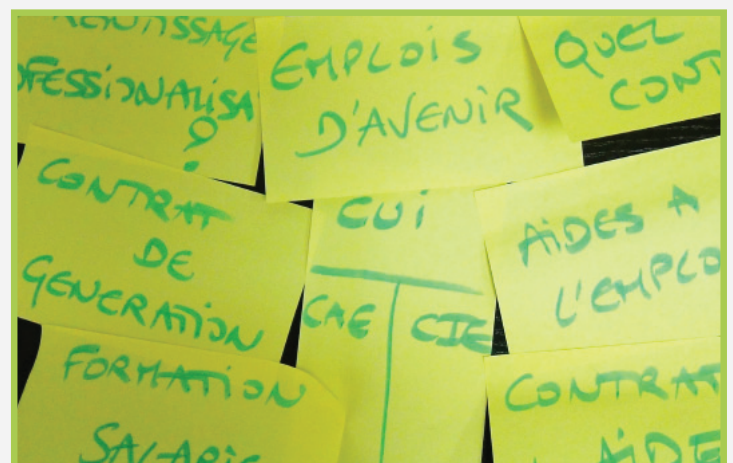 OFESSIONALISA
?
EMPLOIS
D'AVENIR
QUEL
CONT
CONTRAT
DE
GENERATION
CUI
CAE
CIE
AIDES A
L'EMPLO
FORMATION
SALARIE
CONTRAT
AIDE